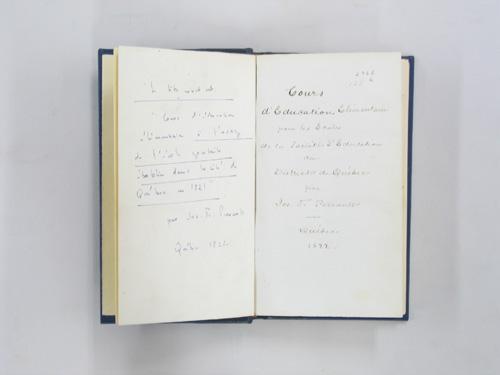 Le titre exact est
"Cours d'Education
Elémentaire à l'usage
de l'école gratuite
établie dans la cité de
Québec en 1821"
par Jos. Fr. Perrault
Québec 1822
Cours
d'Education Elémentaire
pour les Ecoles
de la Société d'Education
du
District de Québec
par
Jos. Fr. Perrault
Québec
1822.